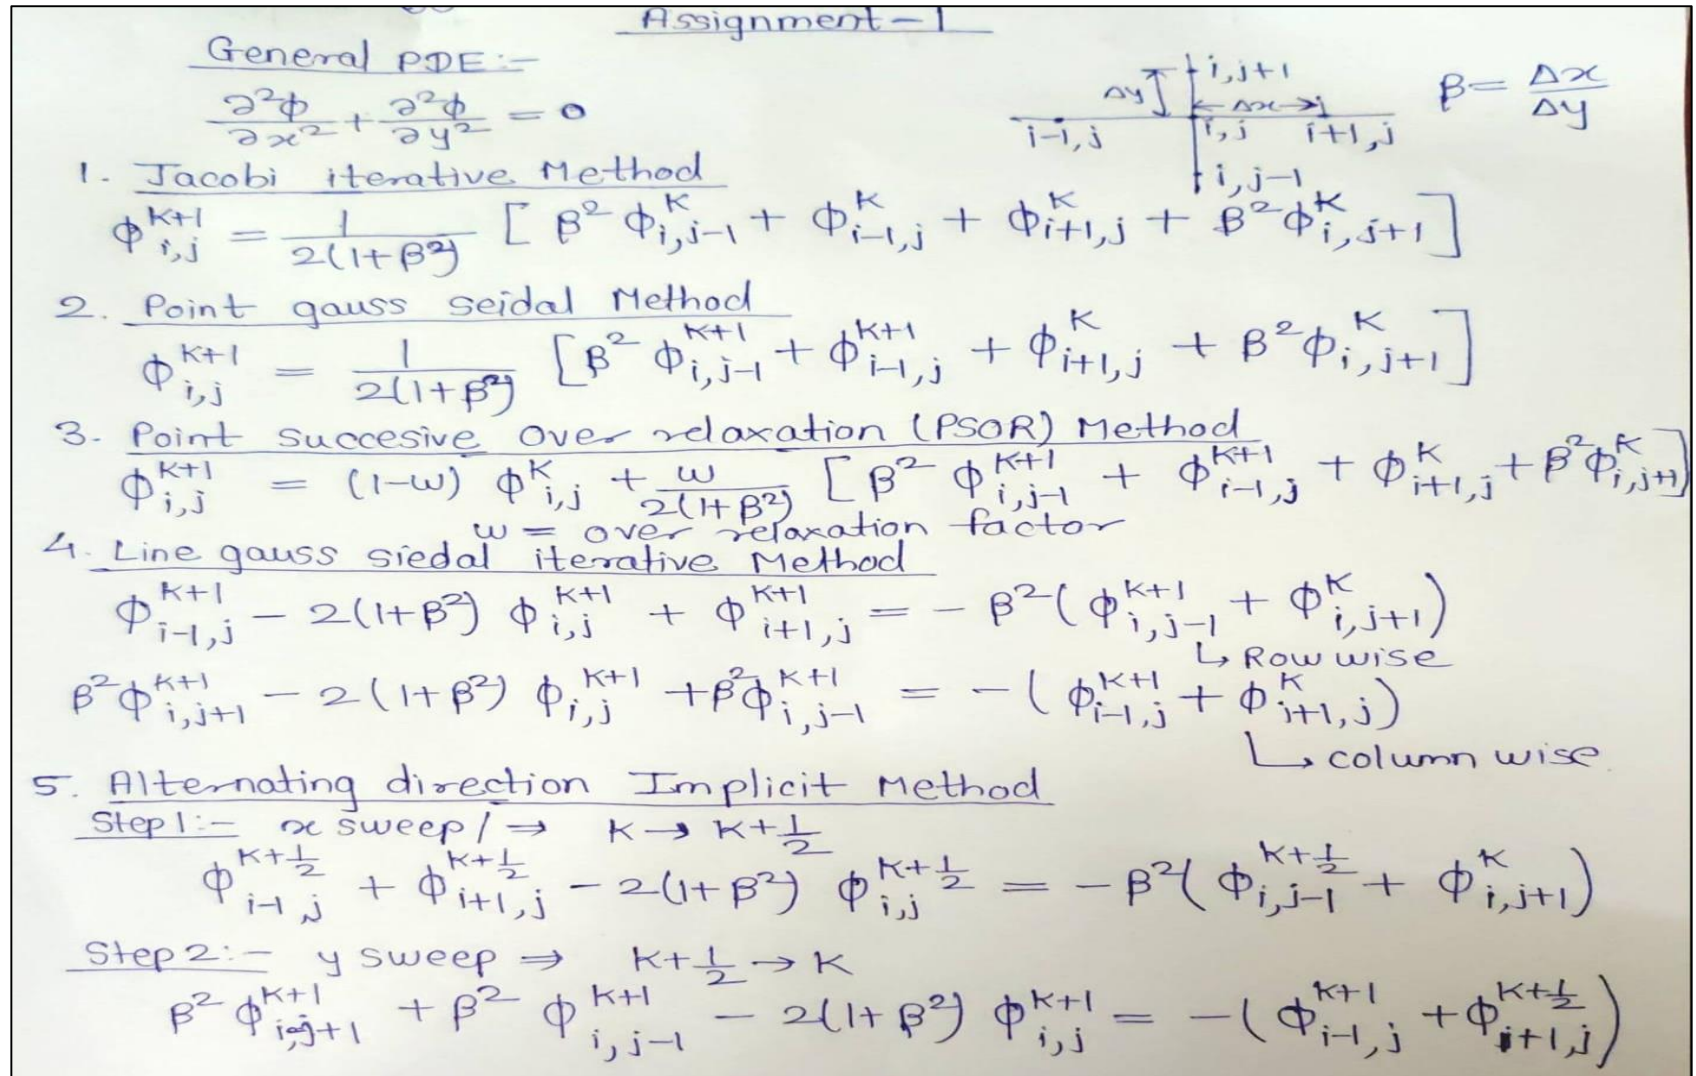 Assignment-1
General PDE:-
∂²φ/∂x² + ∂²φ/∂y² = 0
i,j+1
Δy
←Δx→
i-1,j i,j i+1,j
i,j-1
β = Δx/Δy
1. Jacobi iterative Method
φ^{K+1}_{i,j} = 1/(2(1+β²)) [β² φ^{K}_{i,j-1} + φ^{K}_{i-1,j} + φ^{K}_{i+1,j} + β² φ^{K}_{i,j+1}]
2. Point gauss seidal Method
φ^{K+1}_{i,j} = 1/(2(1+β²)) [β² φ^{K+1}_{i,j-1} + φ^{K+1}_{i-1,j} + φ^{K}_{i+1,j} + β² φ^{K}_{i,j+1}]
3. Point Succesive Over relaxation (PSOR) Method
φ^{K+1}_{i,j} = (1-ω) φ^{K}_{i,j} + ω/(2(1+β²)) [β² φ^{K+1}_{i,j-1} + φ^{K+1}_{i-1,j} + φ^{K}_{i+1,j} + β² φ^{K}_{i,j+1}]
ω = over relaxation factor
4. Line gauss siedal iterative Method
φ^{K+1}_{i-1,j} - 2(1+β²) φ^{K+1}_{i,j} + φ^{K+1}_{i+1,j} = - β²(φ^{K+1}_{i,j-1} + φ^{K}_{i,j+1})
↳ Row wise
β² φ^{K+1}_{i,j+1} - 2(1+β²) φ^{K+1}_{i,j} + β² φ^{K+1}_{i,j-1} = -(φ^{K+1}_{i-1,j} + φ^{K}_{i+1,j})
↳ column wise.
5. Alternating direction Implicit Method
Step 1:- x sweep/ ⇒ K → K+1/2
φ^{K+1/2}_{i-1,j} + φ^{K+1/2}_{i+1,j} - 2(1+β²) φ^{K+1/2}_{i,j} = - β²(φ^{K+1/2}_{i,j-1} + φ^{K}_{i,j+1})
Step 2:- y sweep ⇒ K+1/2 → K
β² φ^{K+1}_{i,j+1} + β² φ^{K+1}_{i,j-1} - 2(1+β²) φ^{K+1}_{i,j} = -(φ^{K+1}_{i-1,j} + φ^{K+1/2}_{i+1,j})